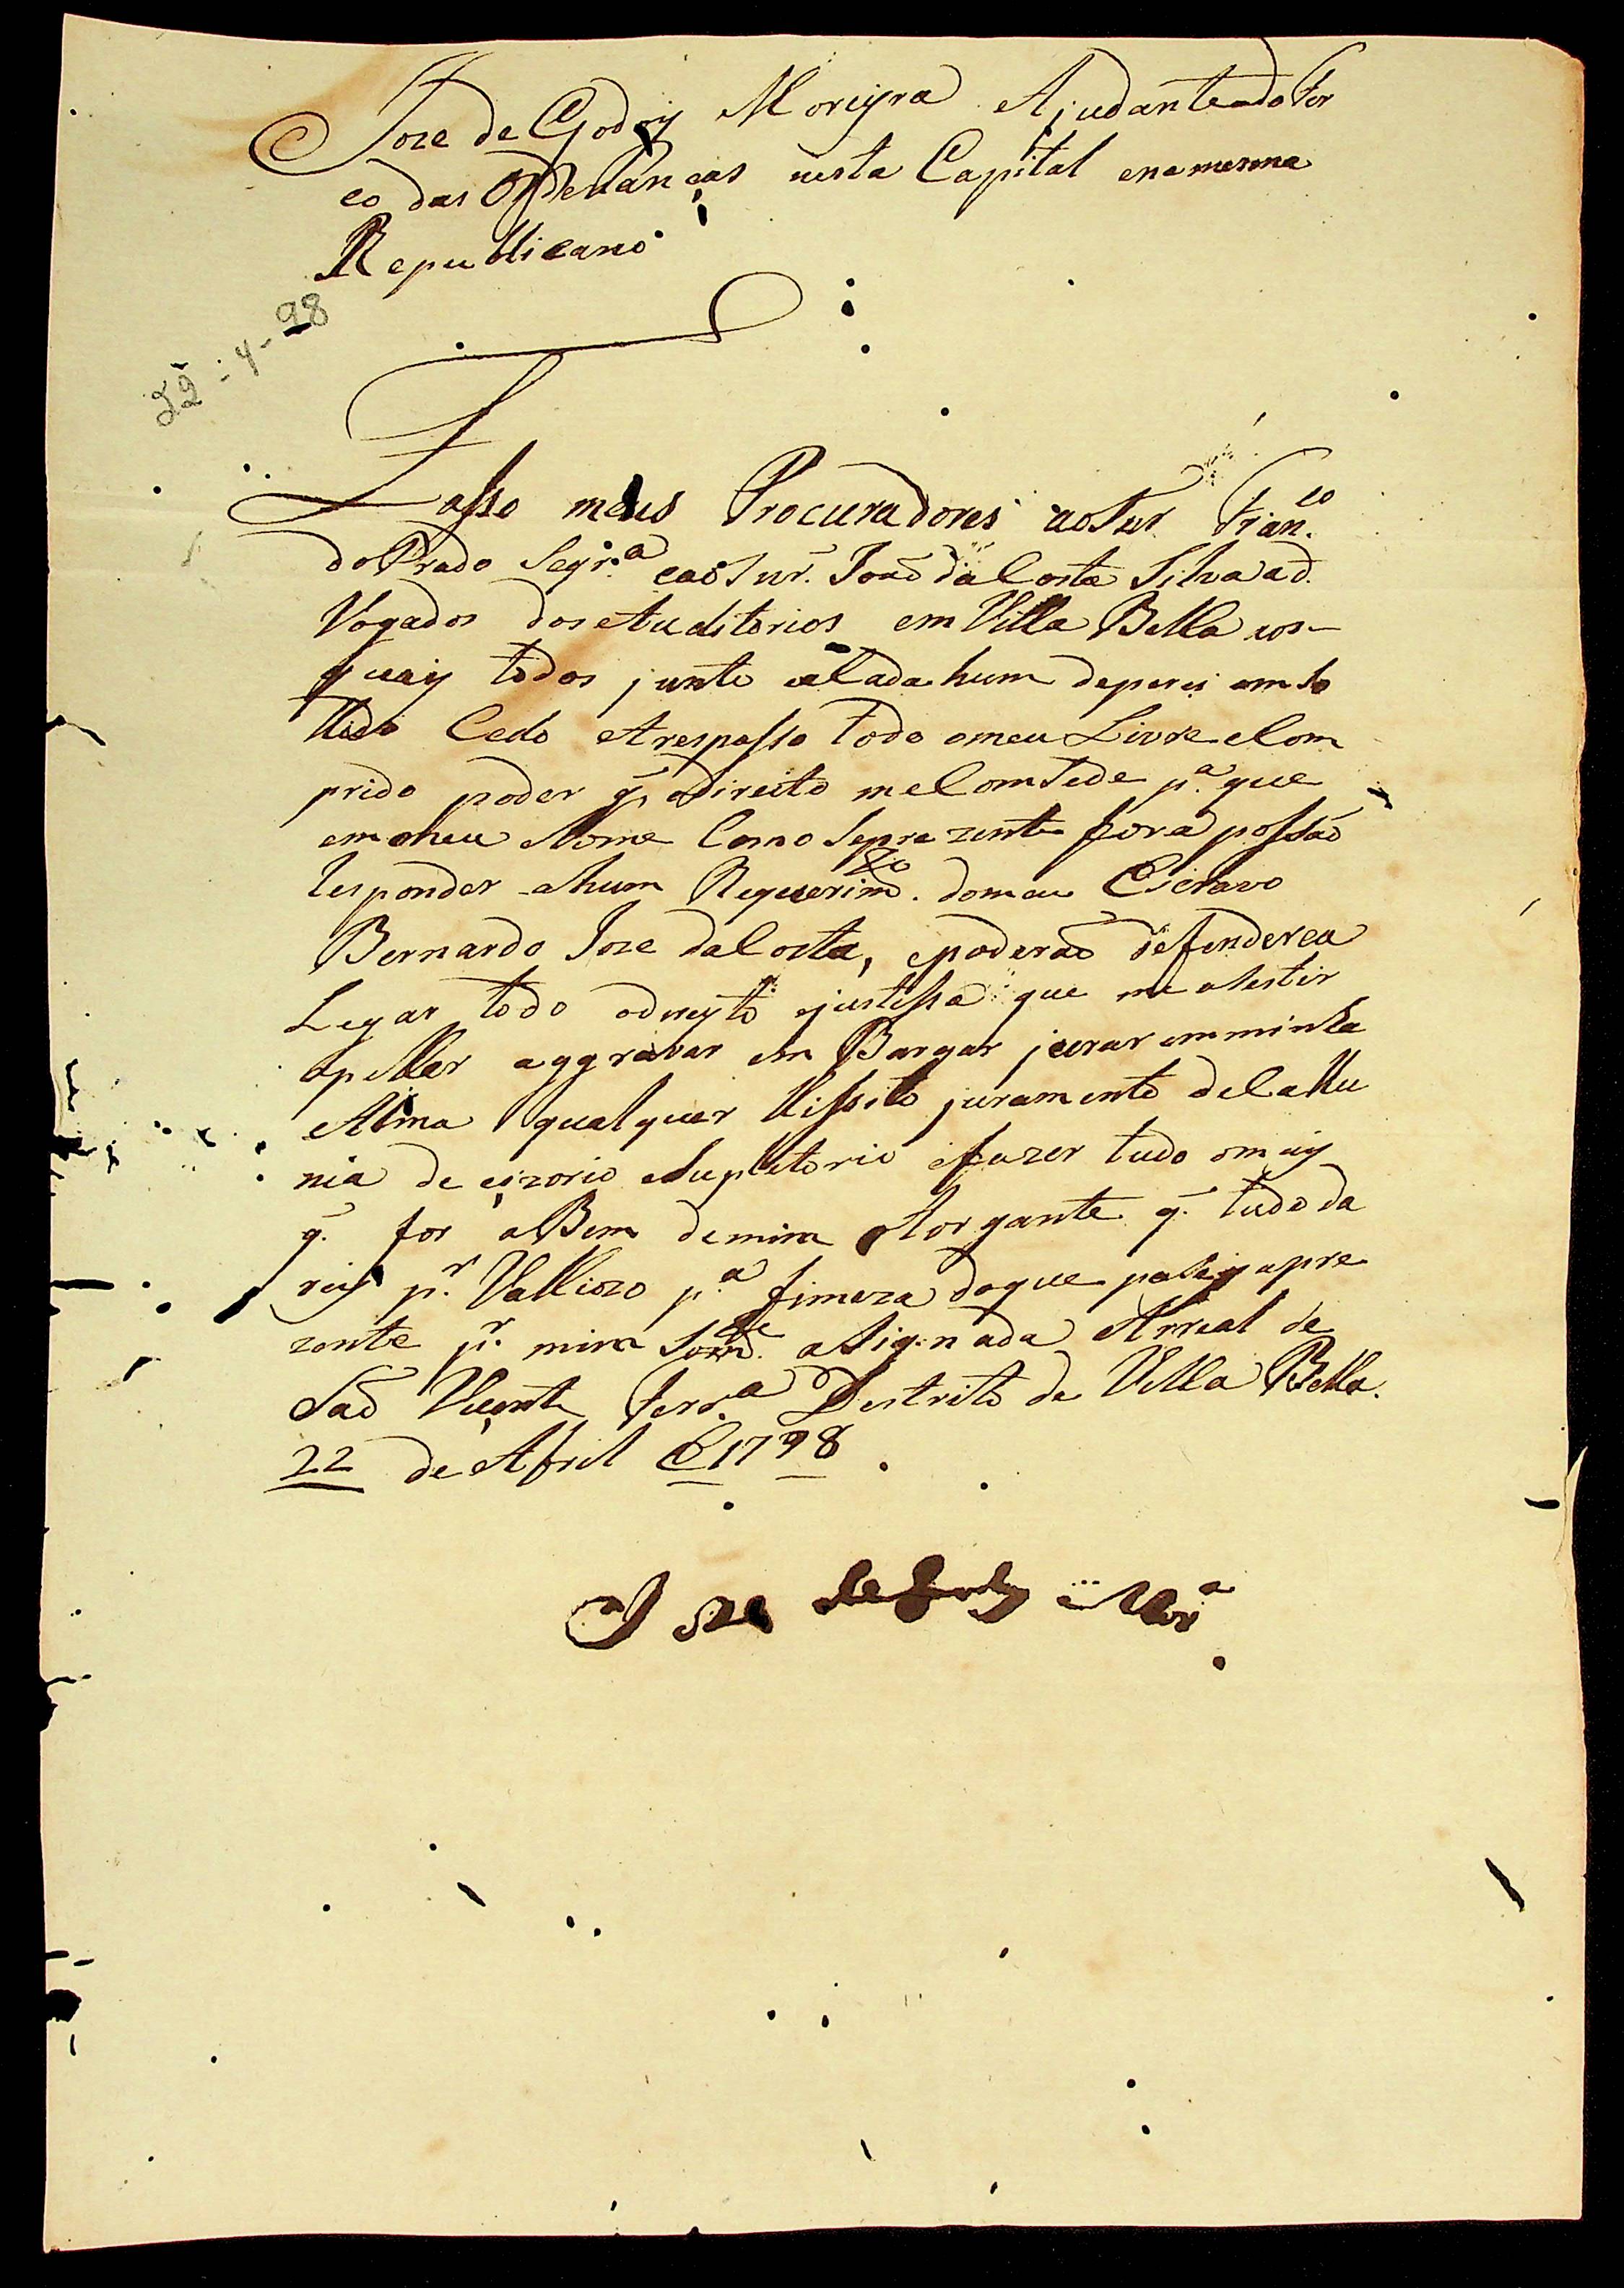 Joze de Godoy Moreyra Ajudante do Ter
co das Ordenanças nesta Capital enamesma
Republicano
22-4-98
Fasso meus Procuradores aoSnr Fran.co
doPrado Segr.a eaoSnr. Joaõ daCosta Silva ad.
Vogados dosAuditorios em Villa Bella aos
quaiy todos junto eCada hum deperci emso
llido Cedo Arespasso todo omeu Livre eCom
prido poder q̃ odireito meComsede p.a que
emmeu Nome Como Seprezente fora possaõ
Responder ahum Requerimto. domeu Escravo
Bernardo Joze daCosta, epoderaõ defenderea
Legar todo odireyto ejustissa que me asestir
apellar aggravar em Bargar jurar emminha
Alma qualquer llissito juramento deCallu
nia de cizorio eSupletorio efazer tudo omaiy
q̃. for aBem demim Otorgante q̃. tudo da
rey p.r Valliozo p.a firmeza doque pasey apre
zente p.r mim Somde. asignada Arreal de
Saõ Vicente Ferr.a Destrito de Villa Bella.
22 de Abril e 1798
Joze deGodoy Mor.a